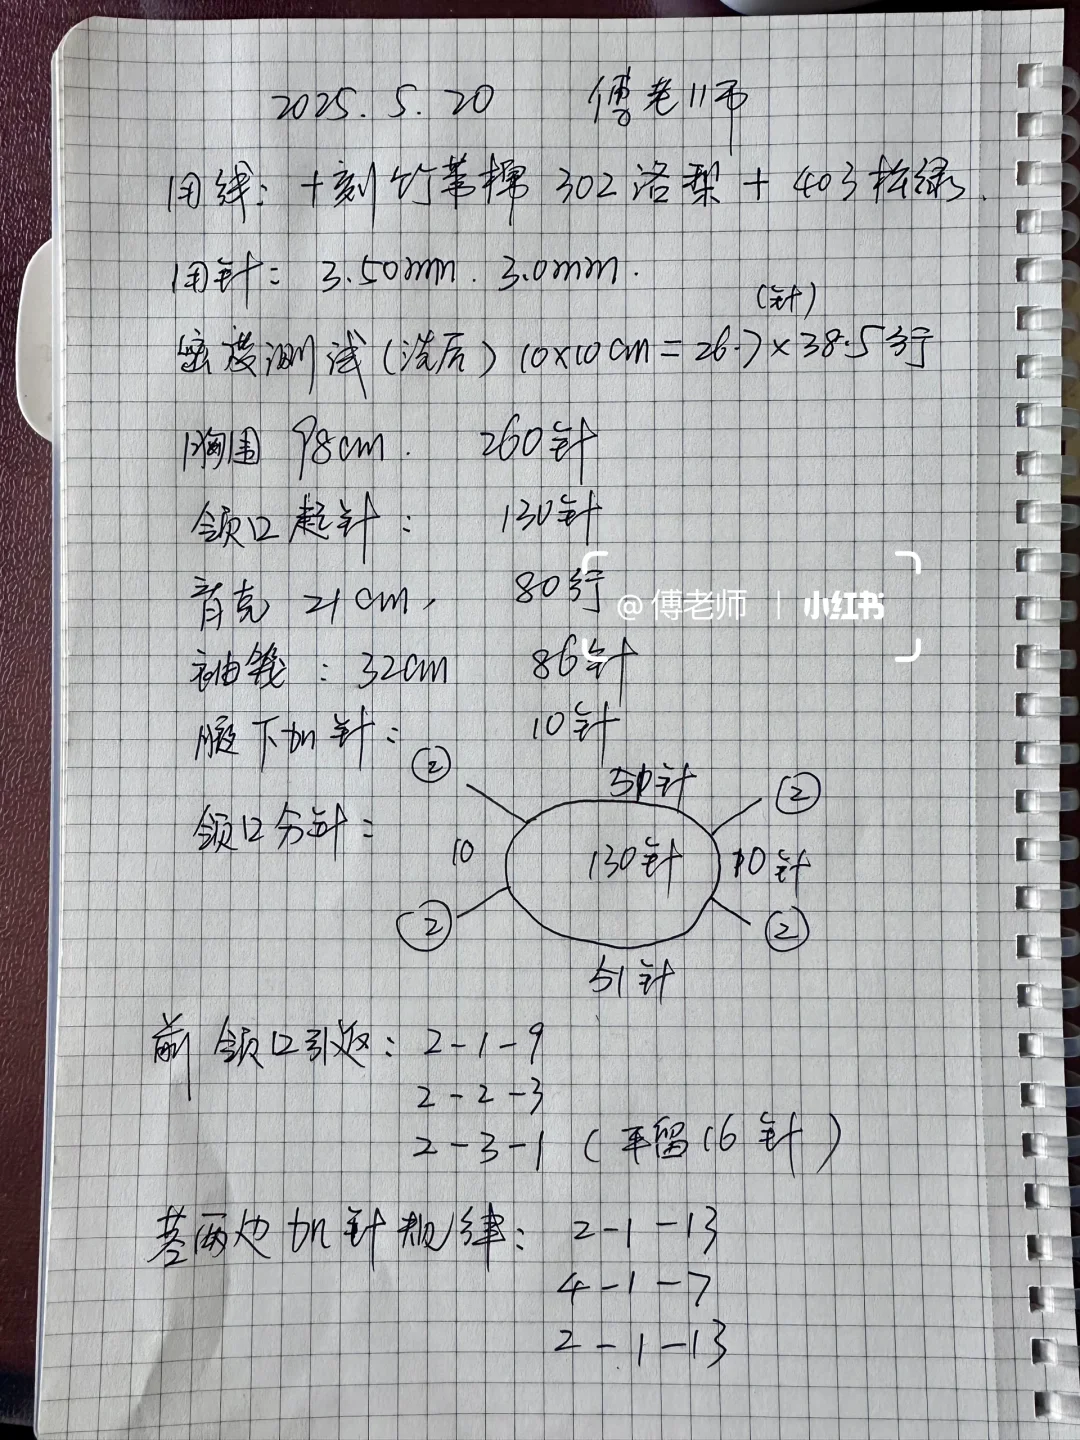 2025.5.20 傅老师
用线：十刻竹苇棉 302洛梨+403松绿.
用针：3.50mm. 3.0mm.
(针)
密度测试(洗后) 10×10cm=26.7×38.5行
胸围 98cm. 260针
领口起针： 130针
育克 21cm, 80行
@傅老师 | 小红书
袖笼：32cm 86针
腋下加针： 10针
领口分针：
② 51针 ②
10 130针 10针
② ②
51针
前领口引返：2-1-9
2-2-3
2-3-1 (平留16针)
茎两边加针规律：2-1-13
4-1-7
2-1-13